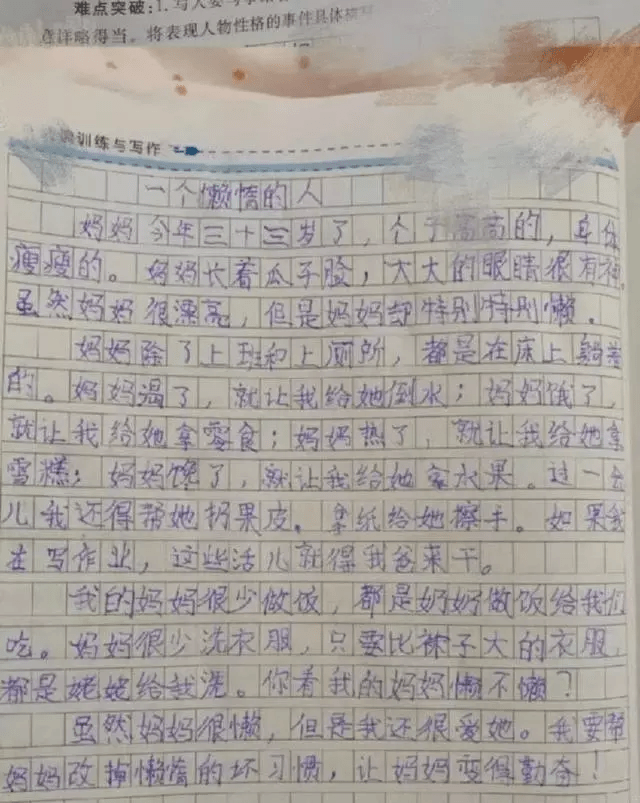 难点突破:1.写人要与事
意详略得当。将表现人物性格的事件具体描写
训练与写作
一个懒惰的人
妈妈今年三十三岁了，个子高高的，身体
瘦瘦的。妈妈长着瓜子脸，大大的眼睛很有神。
虽然妈妈很漂亮，但是妈妈却特别特别懒。
妈妈除了上班和上厕所，都是在床上躺着
的。妈妈渴了，就让我给她倒水；妈妈饿了，
就让我给她拿零食；妈妈热了，就让我给她拿
雪糕；妈妈馋了，就让我给她拿水果。过一会
儿我还得帮她扔果皮。拿纸给她擦手。如果我
在写作业，这些活儿就得我爸来干。
我的妈妈很少做饭，都是奶奶做饭给我们
吃。妈妈很少洗衣服，只要比袜子大的衣服，
都是姥姥给我洗。你看我的妈妈懒不懒？
虽然妈妈很懒，但是我还很爱她。我要帮
妈妈改掉懒惰的坏习惯，让妈妈变得勤奋！